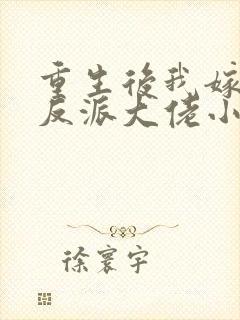 重生後我嫁
反派大佬小
徐寰宇